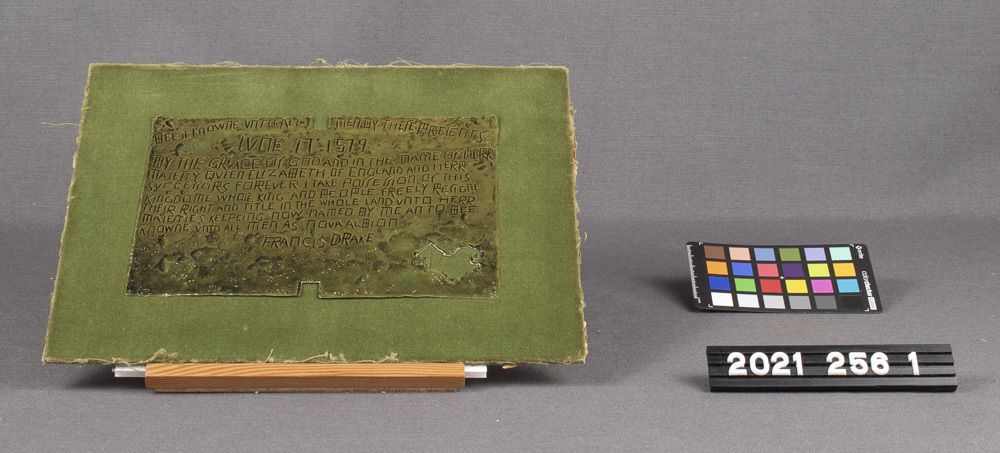 BEE IT KNOWNE VNTO ALL MEN BY THESE PRESENTS
IVNE 17 1579
BY THE GRACE OF GOD AND IN THE NAME OF HERR
MAIESTY QVEEN ELIZABETH OF ENGLAND AND HERR
SVCCESSORS FOREVER I TAKE POSSESSION OF THIS
KINGDOME WHOSE KING AND PEOPLE FREELY RESIGNE
THEIR RIGHT AND TITLE IN THE WHOLE LAND VNTO HERR
MAIESTIES KEEPING NOW NAMED BY ME AN TO BEE
KNOWNE VNTO ALL MEN AS NOVA ALBION
FRANCIS DRAKE
colorchecker
2021 256 1